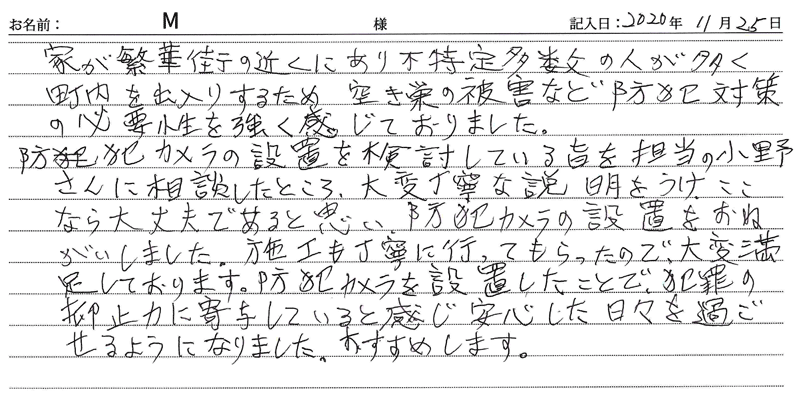 お名前： M 様 記入日：2020年 11月 25日
家が繁華街の近くにあり不特定多数の人が多く
町内を出入りするため 空き巣の被害など防犯対策
の必要性を強く感じておりました。
防犯カメラの設置を検討している旨を担当の小野
さんに相談したところ、大変丁寧な説明をうけ、ここ
なら大丈夫であると思い、防犯カメラの設置をおね
がいしました。施工も丁寧に行ってもらったので、大変満
足しております。防犯カメラを設置したことで、犯罪の
抑止力に寄与していると感じ安心した日々を過ご
せるようになりました。おすすめします。